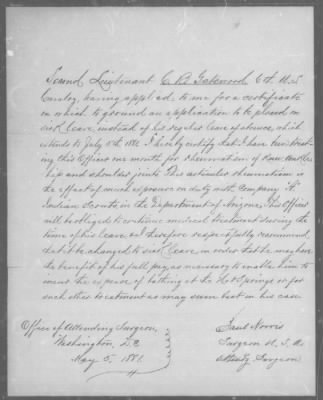 Second Lieutenant C. B. Gatewood 6th U.S.
Cavalry, having applied to me for a certificate
on which to ground an application to be placed on
sick leave, instead of his regular leave of absence, which
extends to July 5th 1881. I hereby certify that I have been treat-
ing this Officer one month for rheumatism of knee, ankle,
hip and shoulder joints. This articular rheumatism is
the effect of much exposure on duty with Company "A"
Indian Scouts in the Department of Arizona. This Officer
will be obliged to continue medical treatment during the
time of his leave and I therefore respectfully recommend
that it be changed to sick leave in order that he may have
the benefit of his full pay, as necessary to enable him to
incur the expense of bathing at the Hot Springs or for
such other treatment as may seem best in his case.
Office of Attending Surgeon,
Washington, D.C.
May 5, 1881.
Basil Norris
Surgeon U.S.A.
Attendg Surgeon